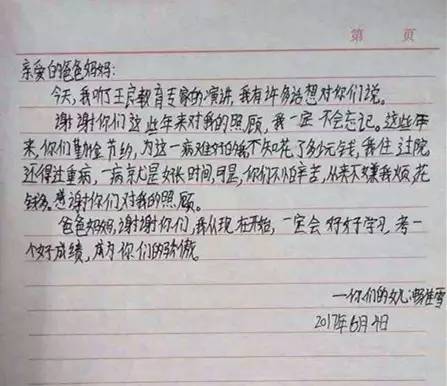 第 页
亲爱的爸爸妈妈:
今天,我听了王良教育专家的演讲,我有许多话想对你们说。
谢谢你们这些年来对我的照顾,我一定不会忘记。这些年
来,你们勤俭节约,为这一病难
不知花了多少元钱,我住过院
还得过重病,一病就是好长时间,可是,你们不怕辛苦,从来不嫌我烦,花
钱多。感谢你们对我的照顾。
爸爸妈妈,谢谢你们,我从现在开始,一定会好好学习,考一
个好成绩,成为你们的骄傲。
—你们的女儿:
佳雪
2017年6月4日